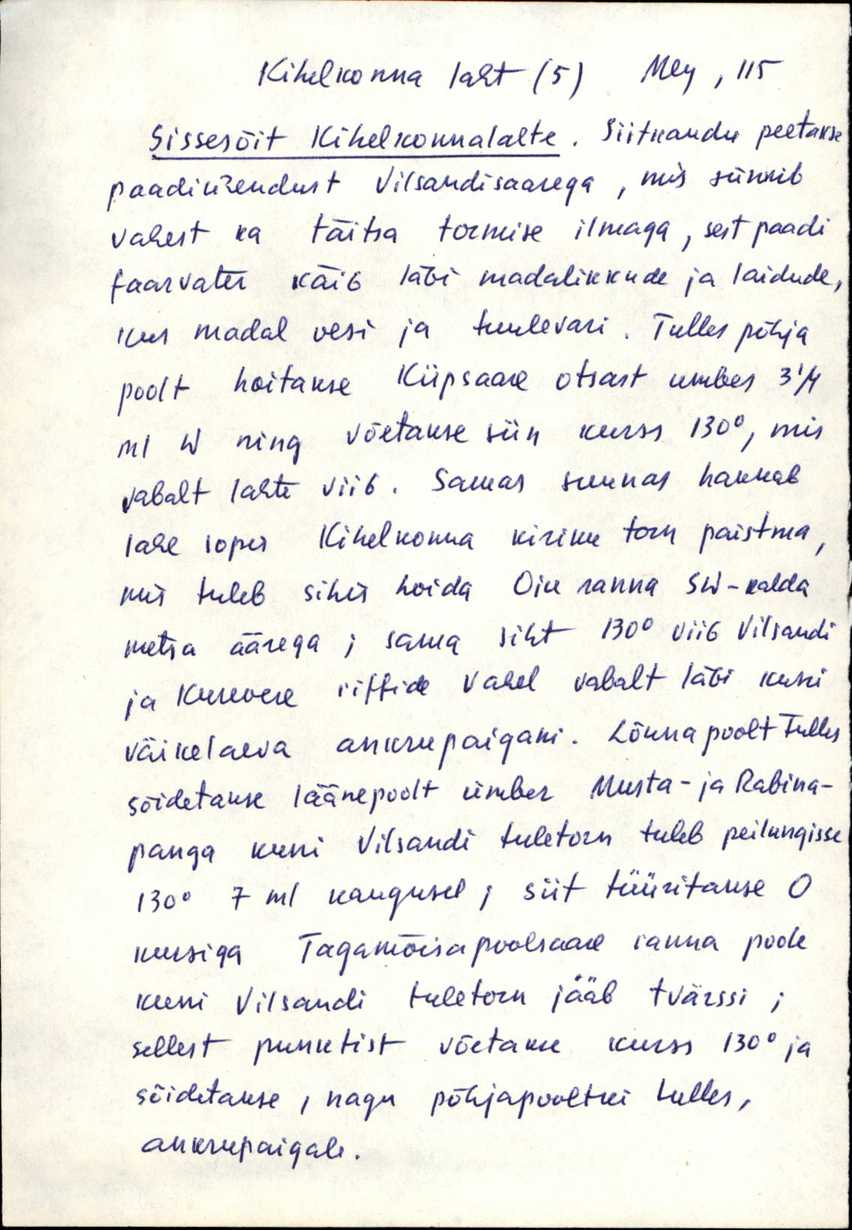 Kihelkonna laht (5) Mey, 115
Sissesõit Kihelkonnalahte. Siitkandu peetakse
paadiühendust Vilsandisaarega, mis sünnib
vahest ka täitsa tormise ilmaga, sest paadi
faarvater käib läbi madalikkude ja laidude,
kus madal vesi ja tuulevari. Tulles põhja
poolt hoitakse Kiipsaare otsast umbes 3 1/4
ml W ning võetakse siin kurss 130°, mis
vabalt lahte viib. Samas suunas hakkab
lahe lõpus Kihelkonna kiriku torn paistma,
mis tuleb sihis hoida Oju ranna SW-kalda
metsa äärega; sama siht 130° viib Vilsandi
ja Kurevere riffide vahel vabalt läbi kuni
väikelaeva ankrupaigani. Lõunapoolt tulles
sõidetakse läänepoolt ümber Musta- ja Rabina-
panga kuni Vilsandi tuletorn tuleb peilungisse
130° 7 ml kaugusel; siit tüüritakse O
kursiga Tagamõisa poolsaare ranna poole
kuni Vilsandi tuletorn jääb tvärssi;
sellest punktist võetakse kurss 130° ja
sõidetakse, nagu põhjapooltki tulles,
ankrupaigale.